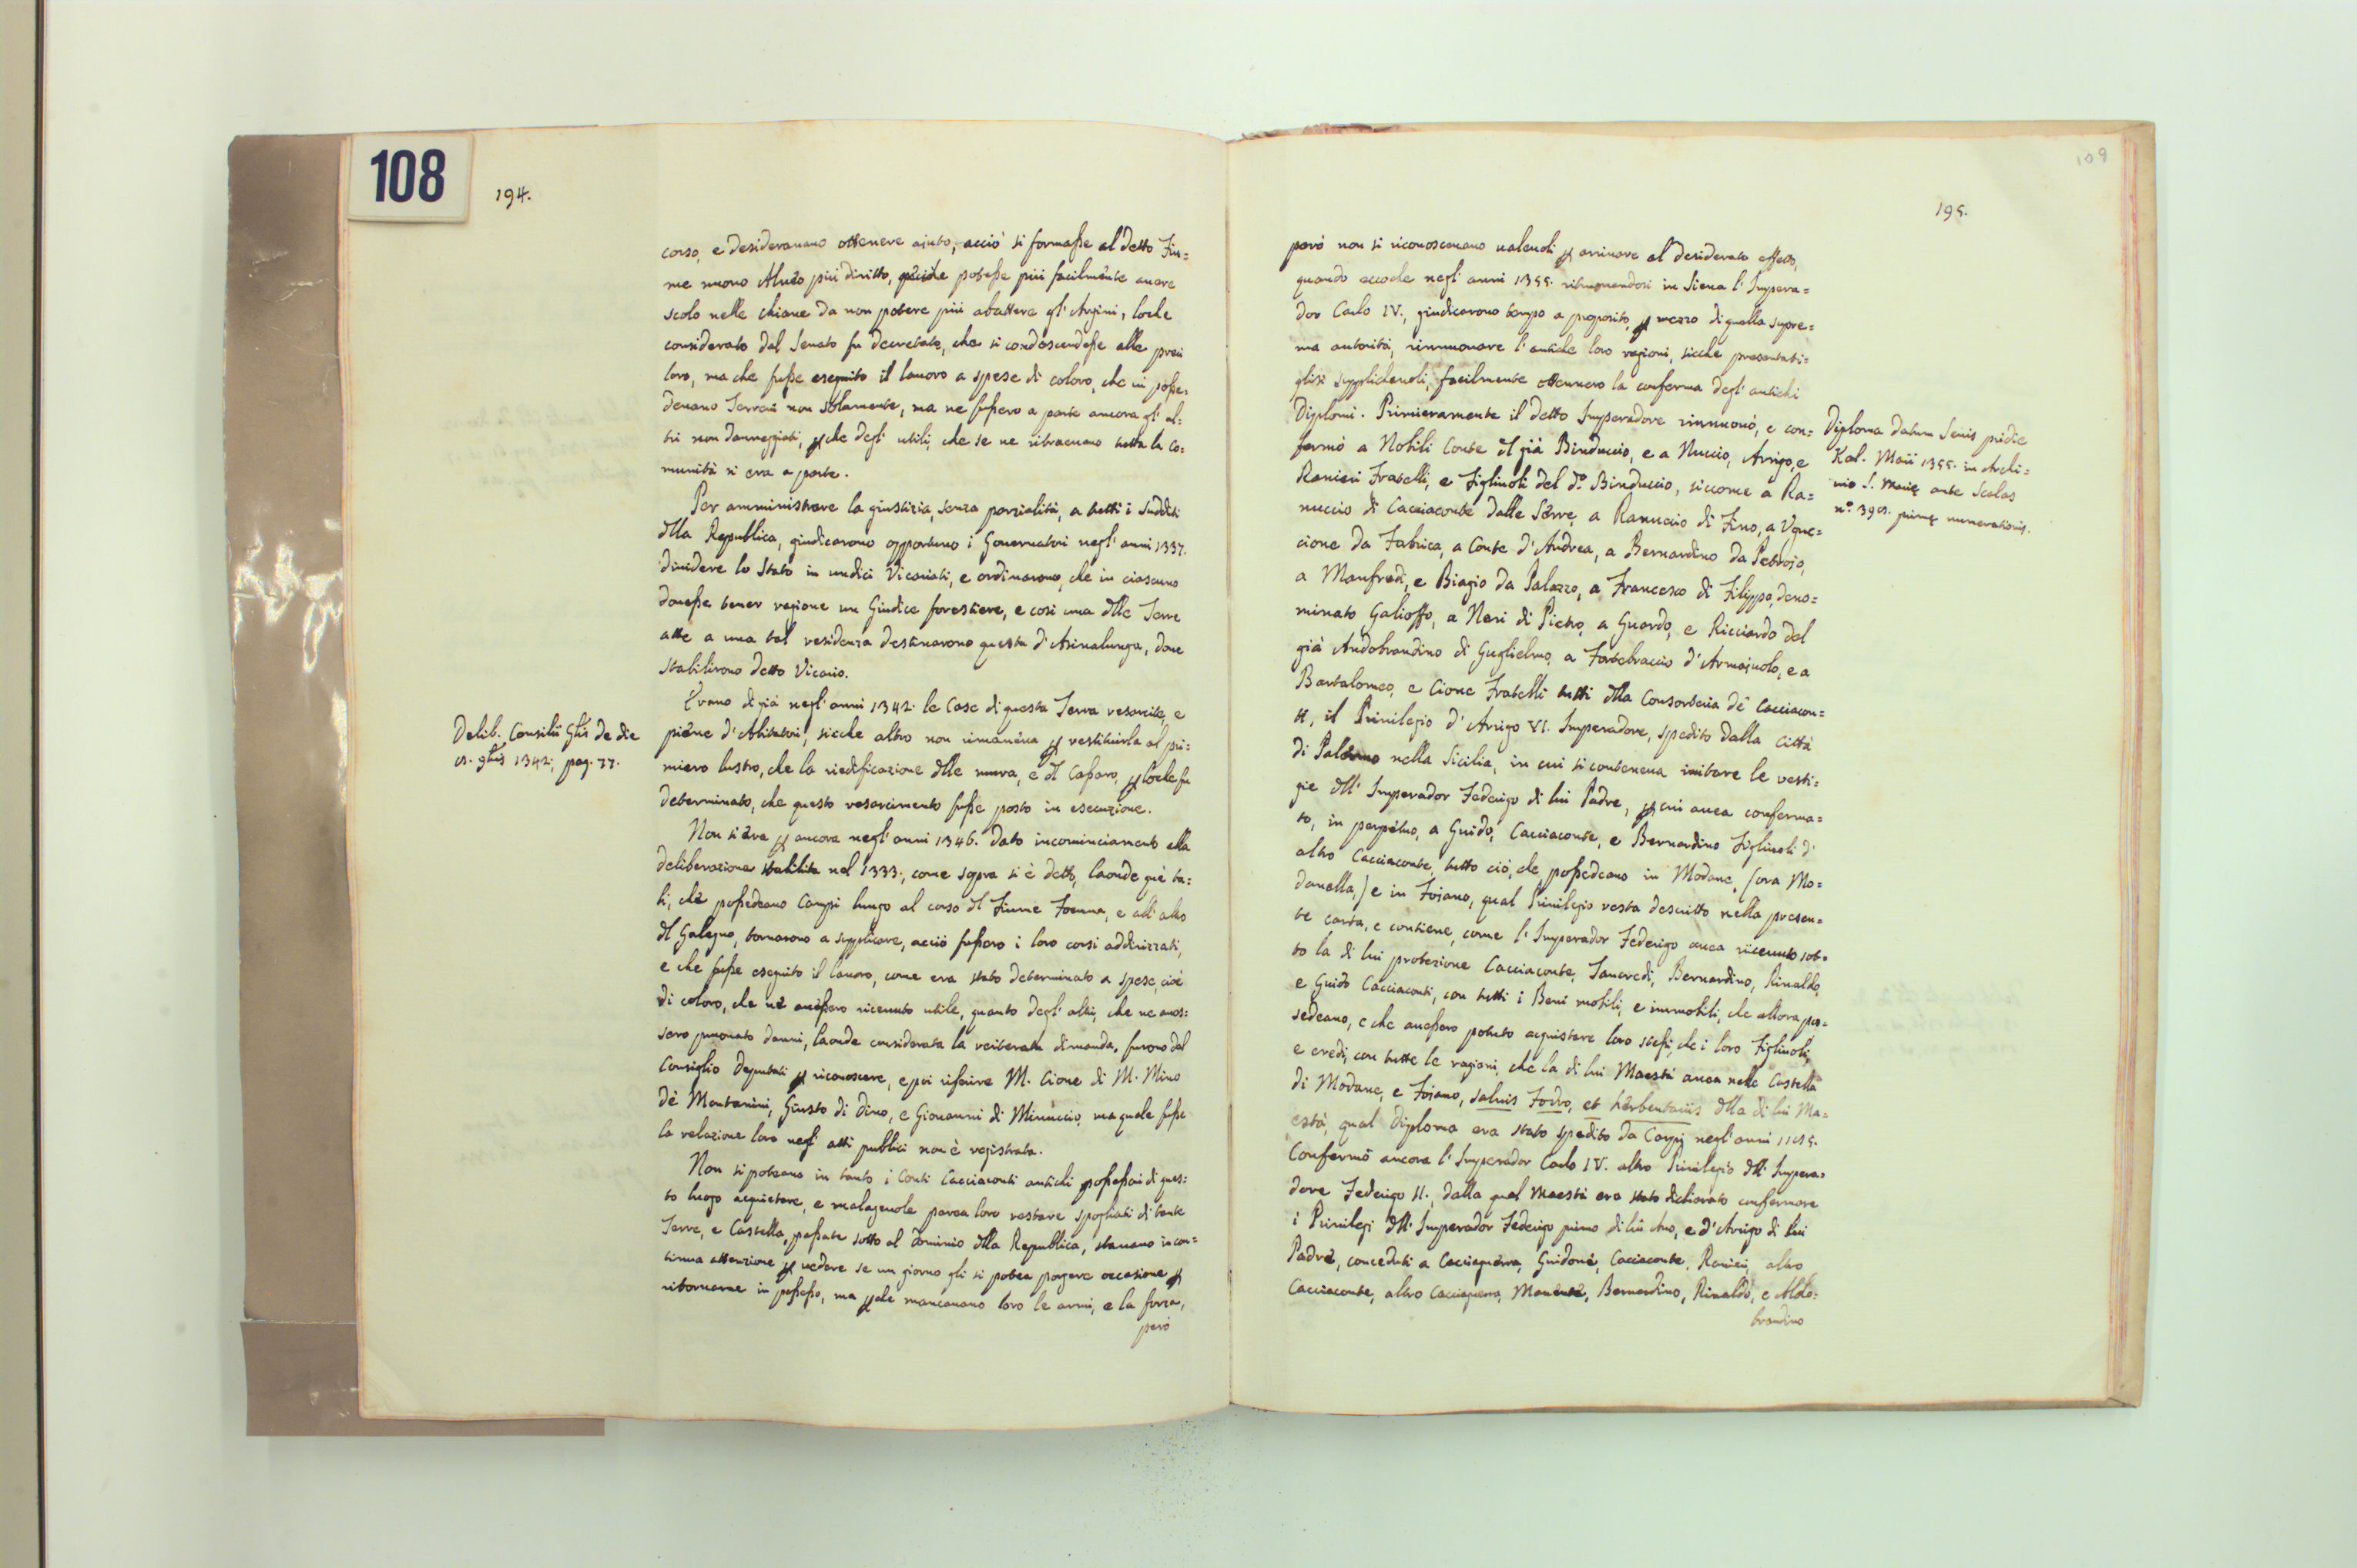 108
194.
corso, e desideravano ottenere ajuto, acciò si formasse al detto Fiu=
me nuovo Alveo più diritto, potesse più facilmente avere
scolo nelle chiane da non potere più abattere gl' Argini, loche
considerato dal Senato fu decretato, che si condescendesse alle preci
loro, ma che fusse eseguito il lavoro a spese di coloro, che ivi posse=
devano Terreni non solamente, ma ne fussero a parte ancora gl' al=
tri non danneggiati, che degl' utili, che se ne ritraevano tutta la Co=
munità si era a parte.
Per amministrare la giustizia, senza parzialità, a tutti i Sudditi
dlla Republica, giudicarono opportuno i Governatori negl' anni 1337.
dividere lo Stato in undici Vicariati, e ordinarono, che in ciascuno
dovesse tener ragione un Giudice forestiere, e così una dlle Terre
atte a una tal residenza destinarono questa d' Asinalunga, dove
stabilirono detto Vicario.
Erano di già negl' anni 1342. le Case di questa Terra resarcite, e
piene d' Abitatori, sicche altro non rimaneva p restituirla al pri=
miero lustro, che la riedificazione dlle mura, e dl Cassaro, p loche fu
determinato, che questo resarcimento fusse posto in esecuzione.
Delib. Consilii Glis de die
15. 9bris 1342. pag. 77.
Non si era p ancora negl' anni 1346. dato incominciamento alla
deliberazione stabilita nel 1333., come sopra si è detto, laonde que' ta=
li, che possedeano Campi lungo al corso dl Fiume Foenna, e all' altro
dl Galegno, tornarono a supplicare, acciò fussero i loro corsi addirizzati,
e che fusse eseguito il lavoro, come era stato determinato a spese, cioè
di coloro, che ne avessero ricevuto utile, quanto degl' altri, che ne aves=
sero provato danni, laonde considerata la reiterata dimanda, furono dal
Consiglio deputati p riconoscere, e poi riferire M. Cione di M. Mino
de' Montanini, Giusto di Dino, e Giovanni di Minuccio, ma quale fusse
la relazione loro negl' atti publici non è registrata.
Non si poteano in tanto i Conti Cacciaconti antichi possessori di ques=
to luogo acquietare, e malagevole parea loro restare spogliati di tante
Terre, e Castella, passate sotto al dominio dlla Republica, stavano in con=
tinua attenzione p vedere se un giorno gli si potea porgere occasione p
ritornarne in possesso, ma pche mancavano loro le armi, e la forza,
però
109
195.
però non si riconoscevano valevoli p arrivare al desiderato effetto,
quando eccoche negl' anni 1355. ritrovandosi in Siena l' Impera=
dor Carlo IV., giudicarono tempo a proposito, p mezzo di quella supre=
ma autorità, rinnuovare l' antiche loro ragioni, sicche presentati=
glisi supplichevoli, facilmente ottennero la conferma degl' antichi
Diplomi. Primieramente il detto Imperadore rinnuovò, e con=
fermò a Nobili Conte dl già Binduccio, e a Nuccio, Arrigo, e
Ranieri Fratelli, e Figliuoli del do. Binduccio, siccome a Ra=
nuccio di Cacciaconte dalle Serre, a Ranuccio di Fino, a Uguc=
cione da Fabrica, a Conte d' Andrea, a Bernardino da Petrojo,
a Manfredi, e Biagio da Palazzo, a Francesco di Filippo, deno=
minato Galioffo, a Neri di Pietro, a Guardo, e Ricciardo del
già Andobrandino di Guglielmo, a Fortebraccio d' Armajuolo, e a
Bartolomeo, e Cione Fratelli tutti dlla Consorteria de' Cacciacon=
ti, il Privilegio d' Arrigo VI. Imperadore, spedito dalla Città
di Palermo nella Sicilia, in cui si conteneva imitare le vesti=
gie dll' Imperador Federigo di lui Padre, p cui avea conferma=
to, in perpetuo, a Guido, Cacciaconte, e Bernardino Figliuoli d'
altro Cacciaconte, tutto ciò, che possedeano in Modane, (ora Mo=
danella,) e in Fojano, qual Privilegio resta descritto nella presen=
te carta, e contiene, come l' Imperador Federigo avea ricevuto sot=
to la di lui protezione Cacciaconte, Tancredi, Bernardino, Rinaldo,
e Guido Cacciaconti, con tutti i Beni mobili, e immobili, che allora pos=
sedeano, e che avessero potuto acquistare loro stessi, che i loro Figliuoli,
e eredi, con tutte le ragioni, che la di lui Maestà avea nelle Castella
di Modane, e Fojano, salvis Fodro, et herbentariis dlla di lui Ma=
està, qual diploma era stato spedito da Carpi negl' anni 1155.
Confermò ancora l' Imperador Carlo IV. altro Privilegio dll' Impera=
dore Federigo II., dalla qual Maestà era stato dichiarato confermare
i Privilegi dll' Imperador Federigo primo di lui Avo, e d' Arrigo di lui
Padre, conceduti a Cacciaguerra, Guidone, Cacciaconte, Ranieri, altro
Cacciaconte, altro Cacciaguerra, Manente, Bernardino, Rinaldo, e Aldo=
brandino
Diploma datum Senis pridie
Kal. Maii 1355. in Archi=
vio S. Marię ante Scalas
no. 395. primę numerationis.